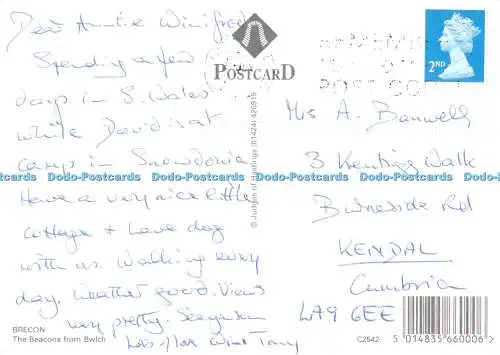 Dear Auntie Winifred
Spending a few
days in S. Wales
while David is at
camp in Snowdonia
Have a very nice little
cottage & have dog
with us. Walking every
day. Weather good. Views
very pretty. See you soon
BRECON
The Beacons from Bwlch
POSTCARD
© Judges of Hastings (01424) 420919
2ND
Mrs A. Banwell
3 Kentigg Walk
Burneside Rd
KENDAL
Cumbria
LA9 6EE
C2542
5 014835 660006
Dodo-Postcards Dodo-Postcards Dodo-Postcards Dodo-Postcards Dodo-Postcards